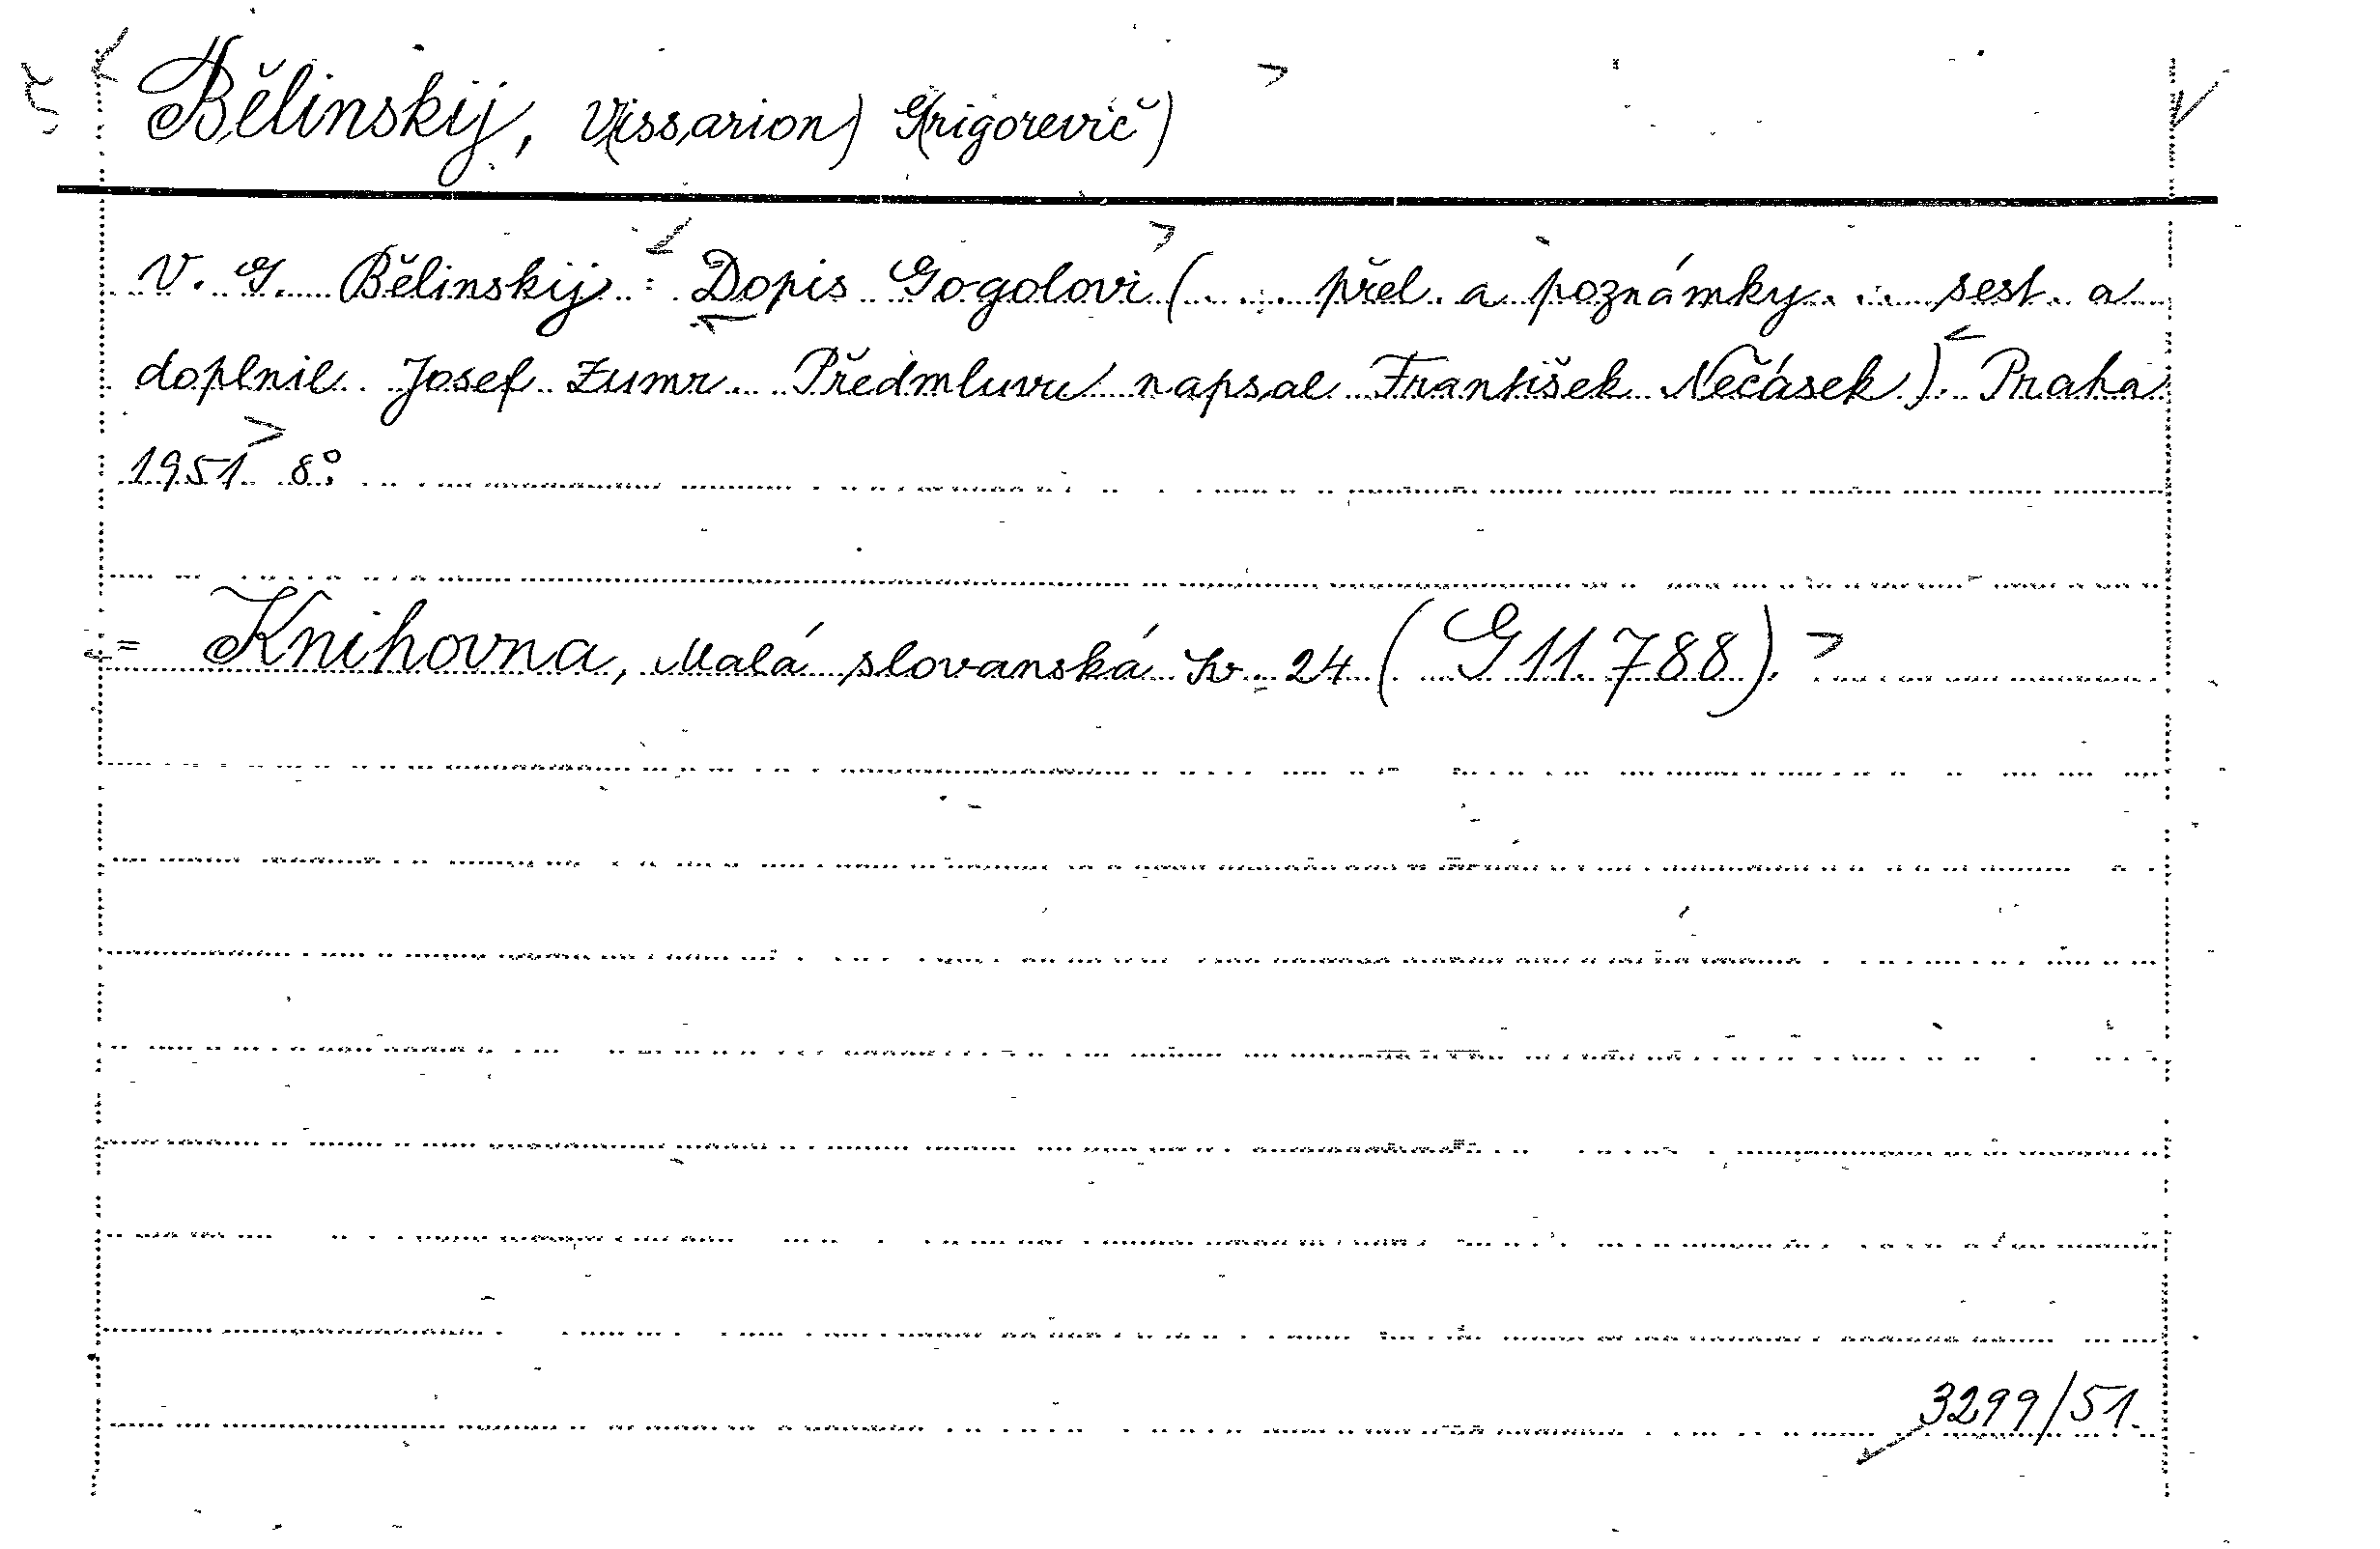 Bělinskij, V(issarion) G(rigorevič)
V. G. Bělinskij : Dopis Gogolovi (... přel. a poznámky ... sest. a
doplnil Josef Zumr. Předmluvu napsal František Nečásek). Praha
1951 8°.
= Knihovna, Malá slovanská sv. 24 (G 11.788).
3299/51.